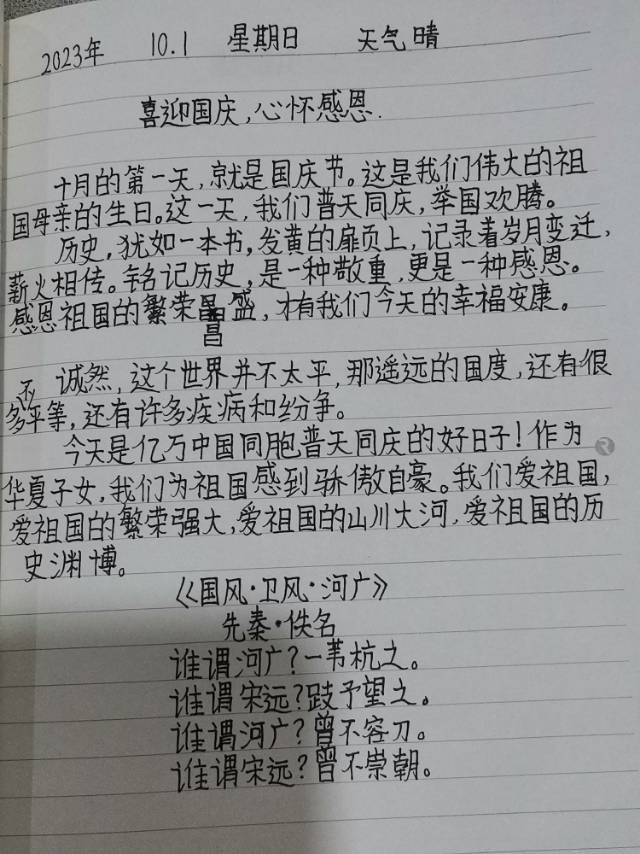 2023年 10.1 星期日 天气晴
喜迎国庆,心怀感恩.
十月的第一天,就是国庆节。这是我们伟大的祖
国母亲的生日。这一天,我们普天同庆,举国欢腾。
历史,犹如一本书,发黄的扉页上,记录着岁月变迁,
薪火相传。铭记历史,是一种敬重,更是一种感恩。
感恩祖国的繁荣昌盛,才有我们今天的幸福安康。
昌
诚然,这个世界并不太平,那遥远的国度,还有很
多不平等,还有许多疾病和纷争。
今天是亿万中国同胞普天同庆的好日子!作为
华夏子女,我们为祖国感到骄傲自豪。我们爱祖国,
爱祖国的繁荣强大,爱祖国的山川大河,爱祖国的历
史渊博。
《国风·卫风·河广》
先秦·佚名
谁谓河广?一苇杭之。
谁谓宋远?跂予望之。
谁谓河广?曾不容刀。
谁谓宋远?曾不崇朝。